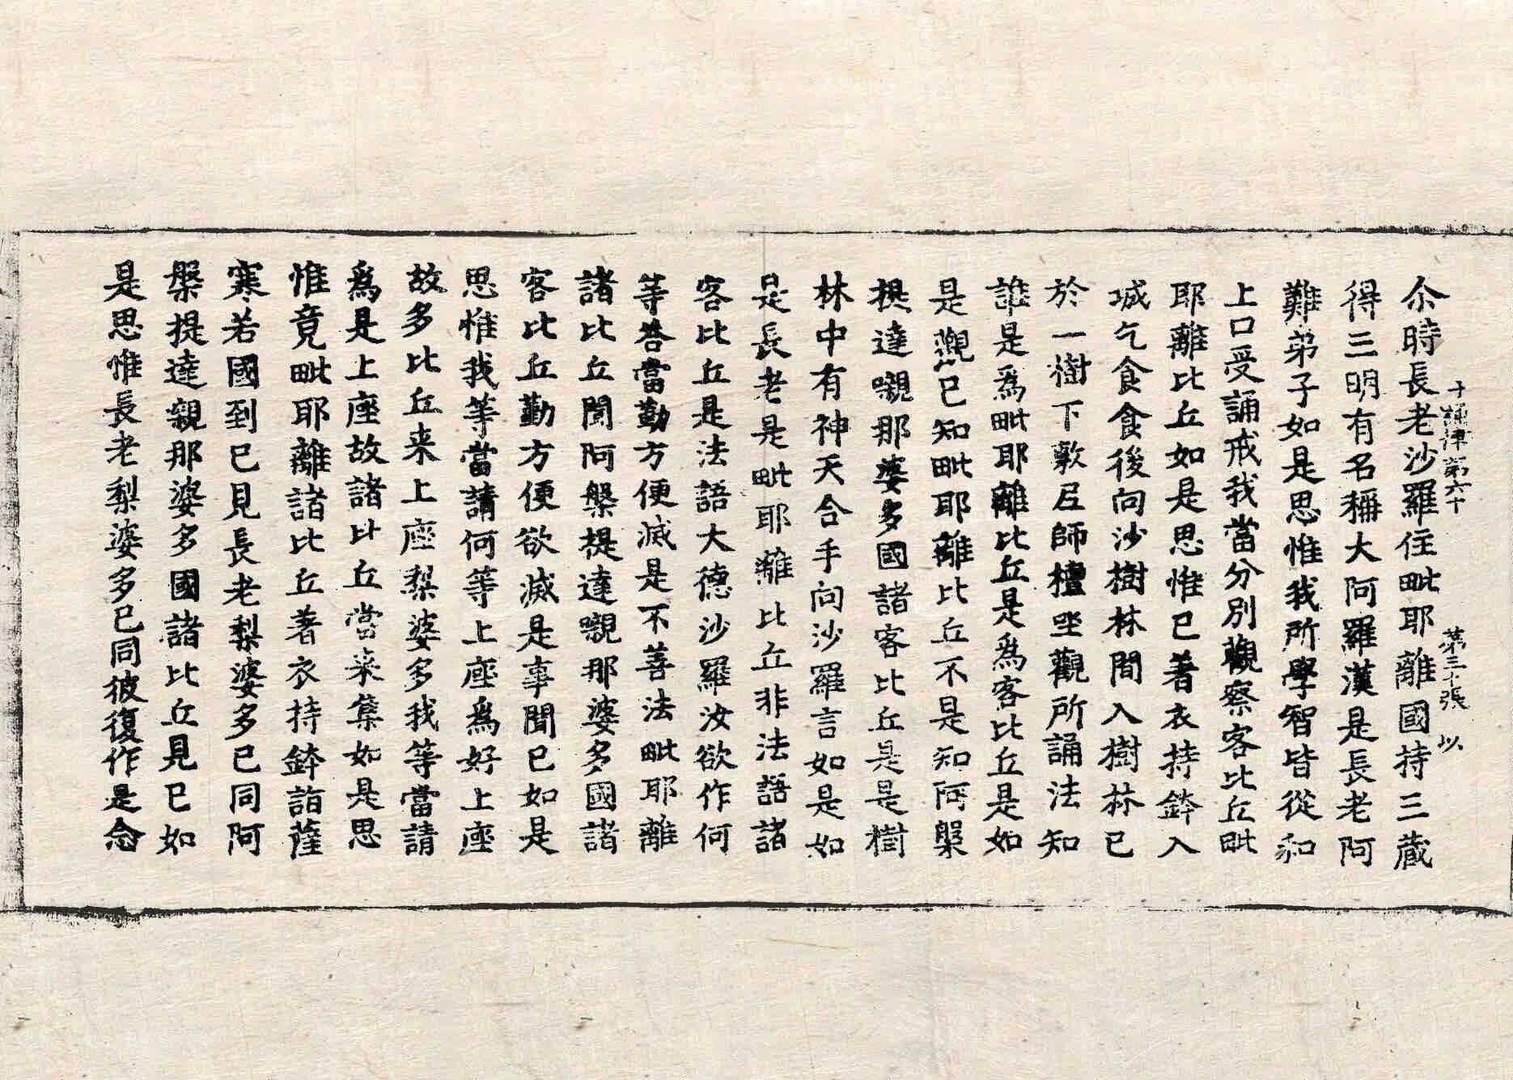 尒時長老沙羅住毗耶離國持三蔵
十誦律第六十 第三十張 以
得三明有名稱大阿羅漢是長老阿
難弟子如是思惟我所學智皆從和
上口受誦戒我當分別觀察客比丘毗
耶離比丘如是思惟已著衣持鉢入
城乞食食後向沙樹林間入樹林已
於一樹下敷尼師檀坐觀所誦法知
誰是爲毗耶離比丘是爲客比丘是如
是觀已知毗耶離比丘不是知阿槃
提達嚫那婆多國諸客比丘是是樹
林中有神天合手向沙羅言如是如
是長老是毗耶離比丘非法語諸
客比丘是法語大德沙羅汝欲作何
等荅當勤方便滅是不善法毗耶離
諸比丘聞阿槃提達嚫那婆多國諸
客比丘勤方便欲滅是事聞已如是
思惟我等當請何等上座爲好上座
故多比丘来上座梨婆多我等當請
爲是上座故諸比丘當来集如是思
惟竟毗耶離諸比丘著衣持鉢詣薩
寒若國到已見長老梨婆多已同阿
槃提達親那婆多國諸比丘見已如
是思惟長老梨婆多已同彼復作是念